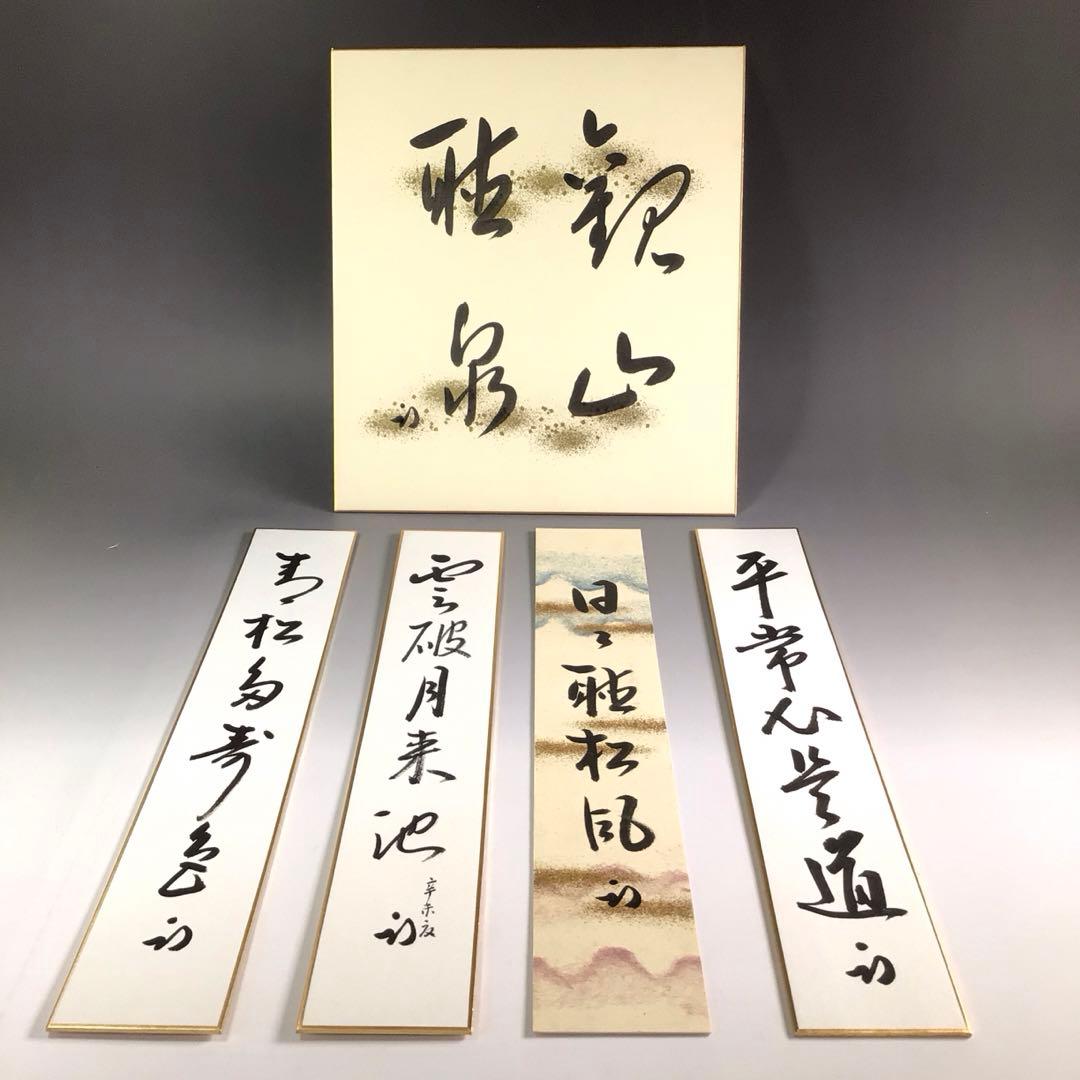 觀山
聴泉
青松多寿色
雲破月来池
辛未夜
日々聴松風
平常心是道